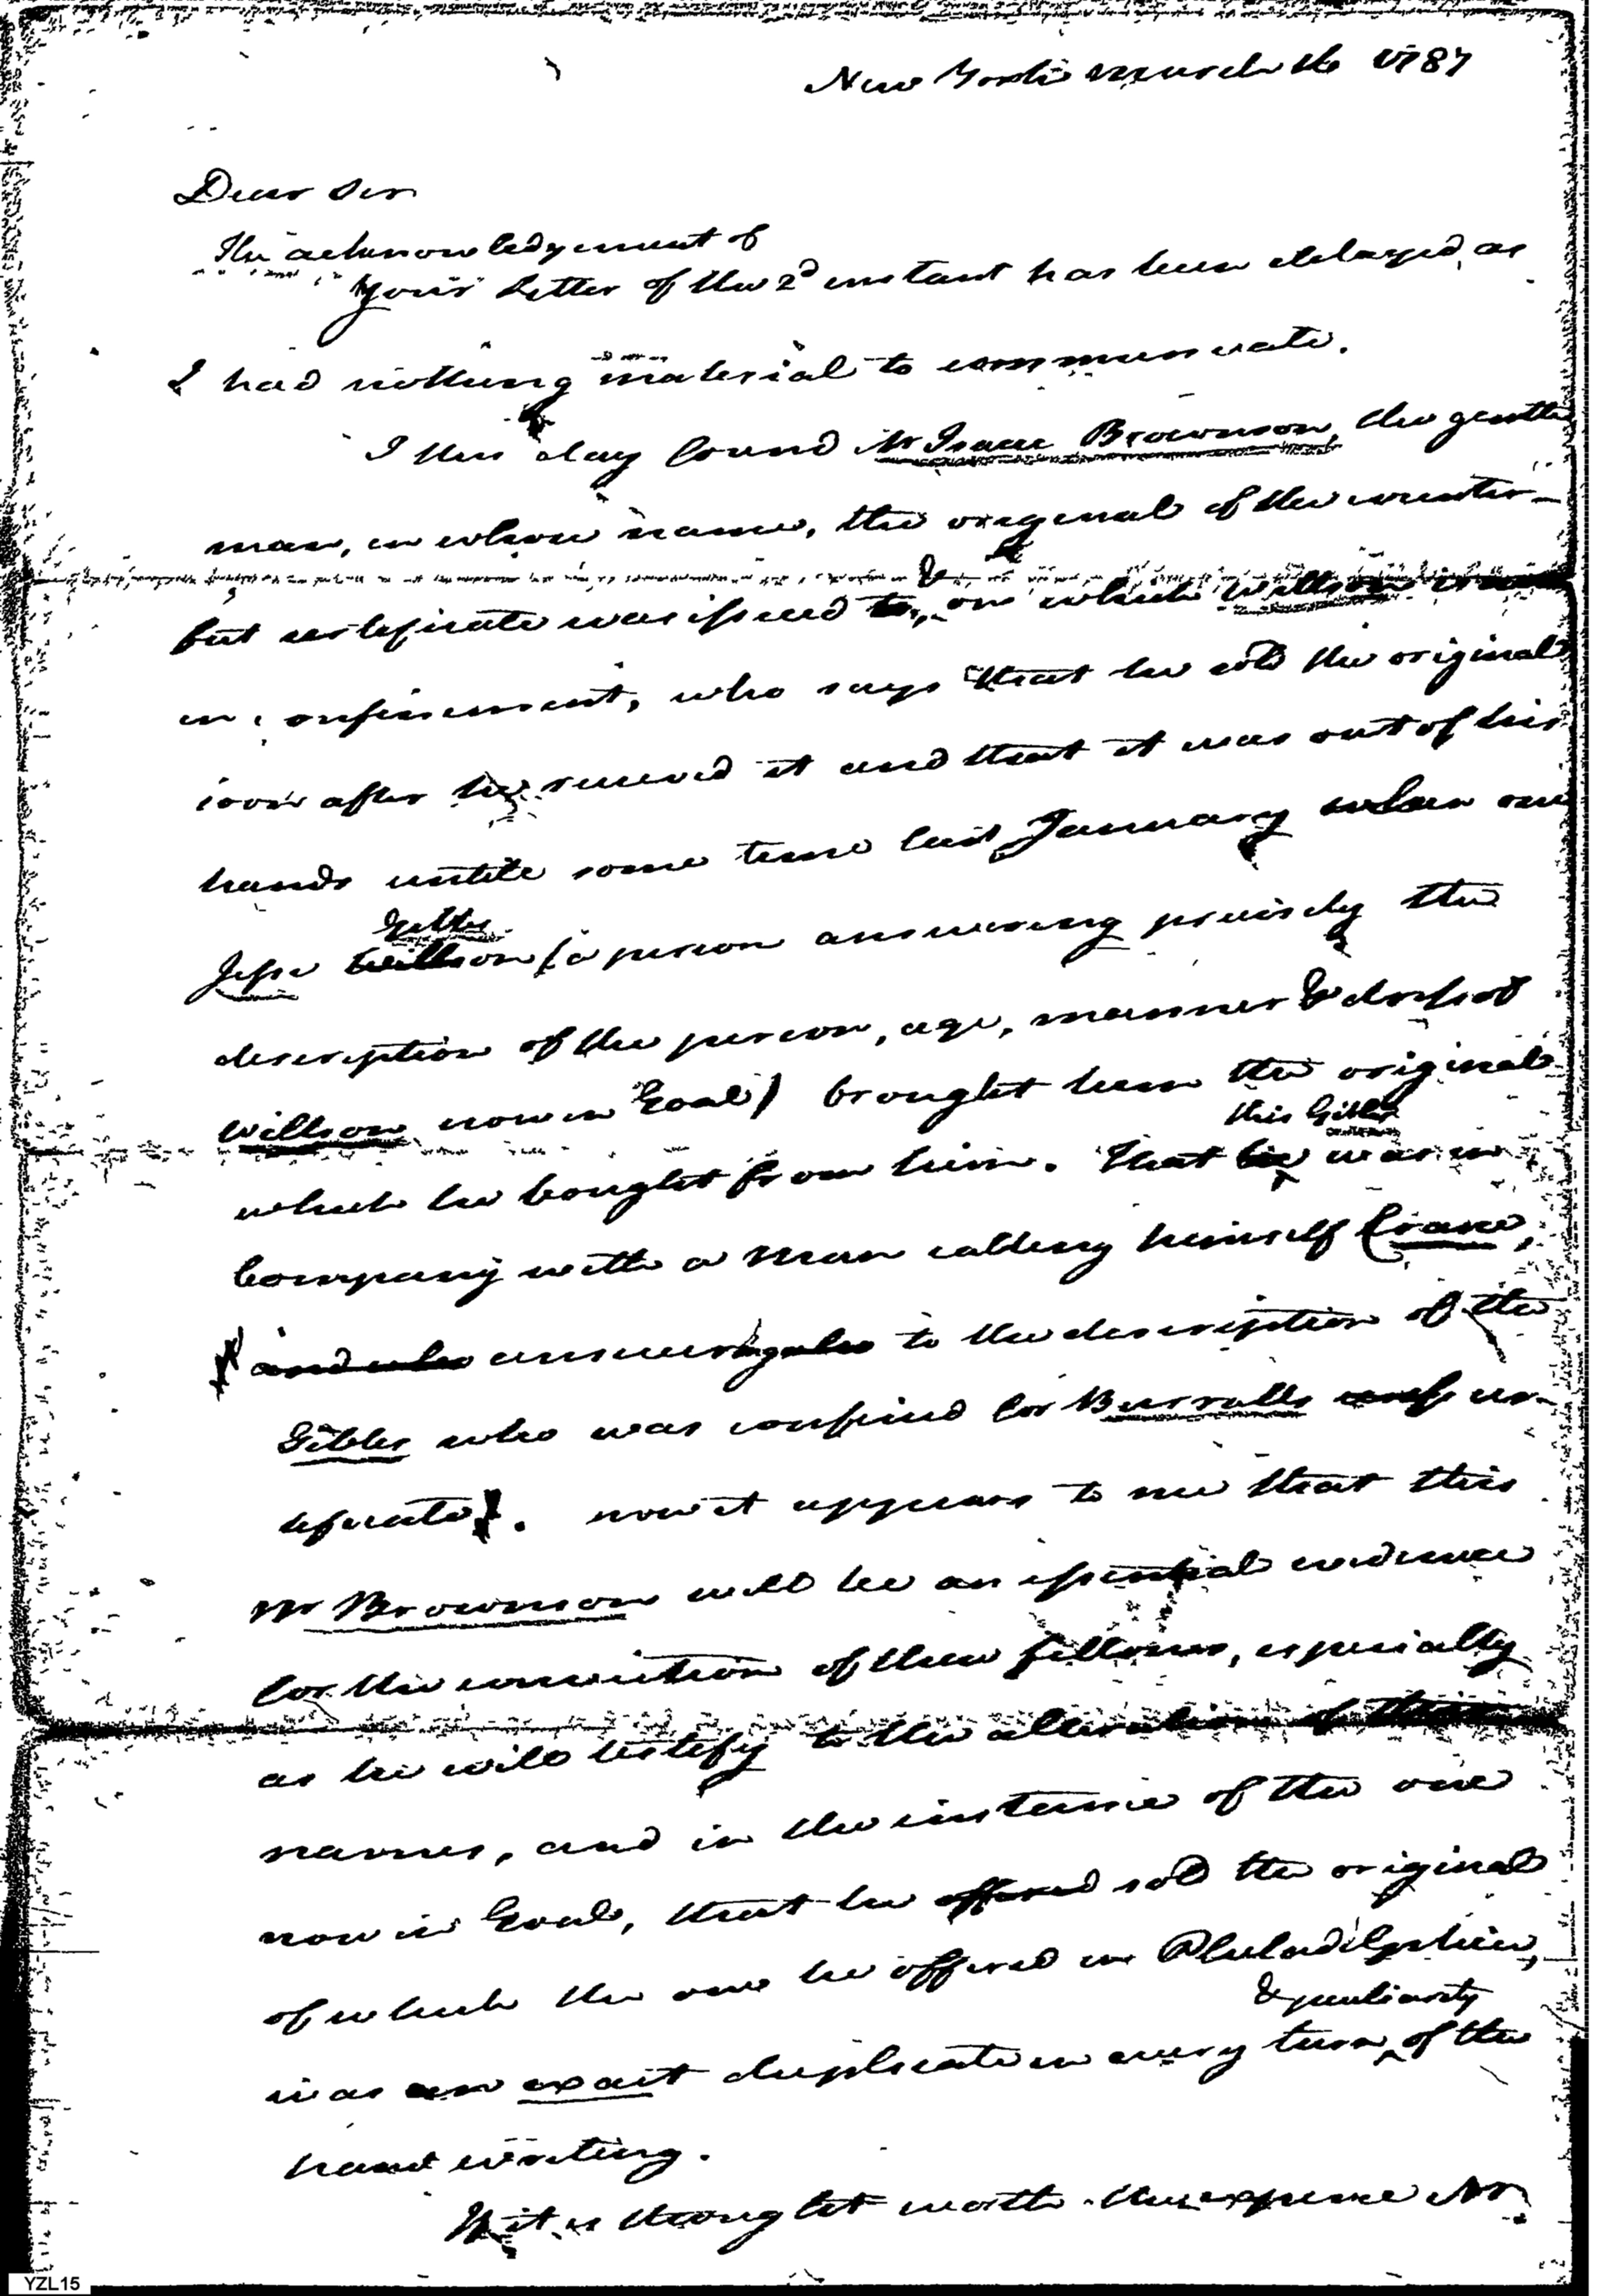 New York March 16 1787
Dear Sir
The acknowledgement of
your Letter of the 2d instant has been delayed, as
I had nothing material to communicate.
I this day found Mr Isaac Brownson, the gentle
man, in whose name, the original of the counter-
feit certificate was issued to, & on which Willson is
in confinement, who says that he sold the original
soon after he received it and that it was out of his
hands untile some time last January when one
Gibbs
Jesse Willson (a person answering precisely the
description of the person, age, manner & dress of
Willson now in Goal) brought him the original
this Gibbs
which he bought from him. That he was in
Company with a Man calling himself Crane,
and who answers to the description of the
Gibbs who was confined for Burralls cer-
tificate. now it appears to me that this
Mr Brownson will be an essential evidence
for the conviction of these fellows, especially
as he will testify to the alteration of their
names, and in the instance of the one
now in Goal, that he offered sold the original
of which the one he offered in Philadelphia,
& peculiarity
was an exact duplicate in every turn of the
hand writing.
If it is thought worth the expence Mr
YZL15